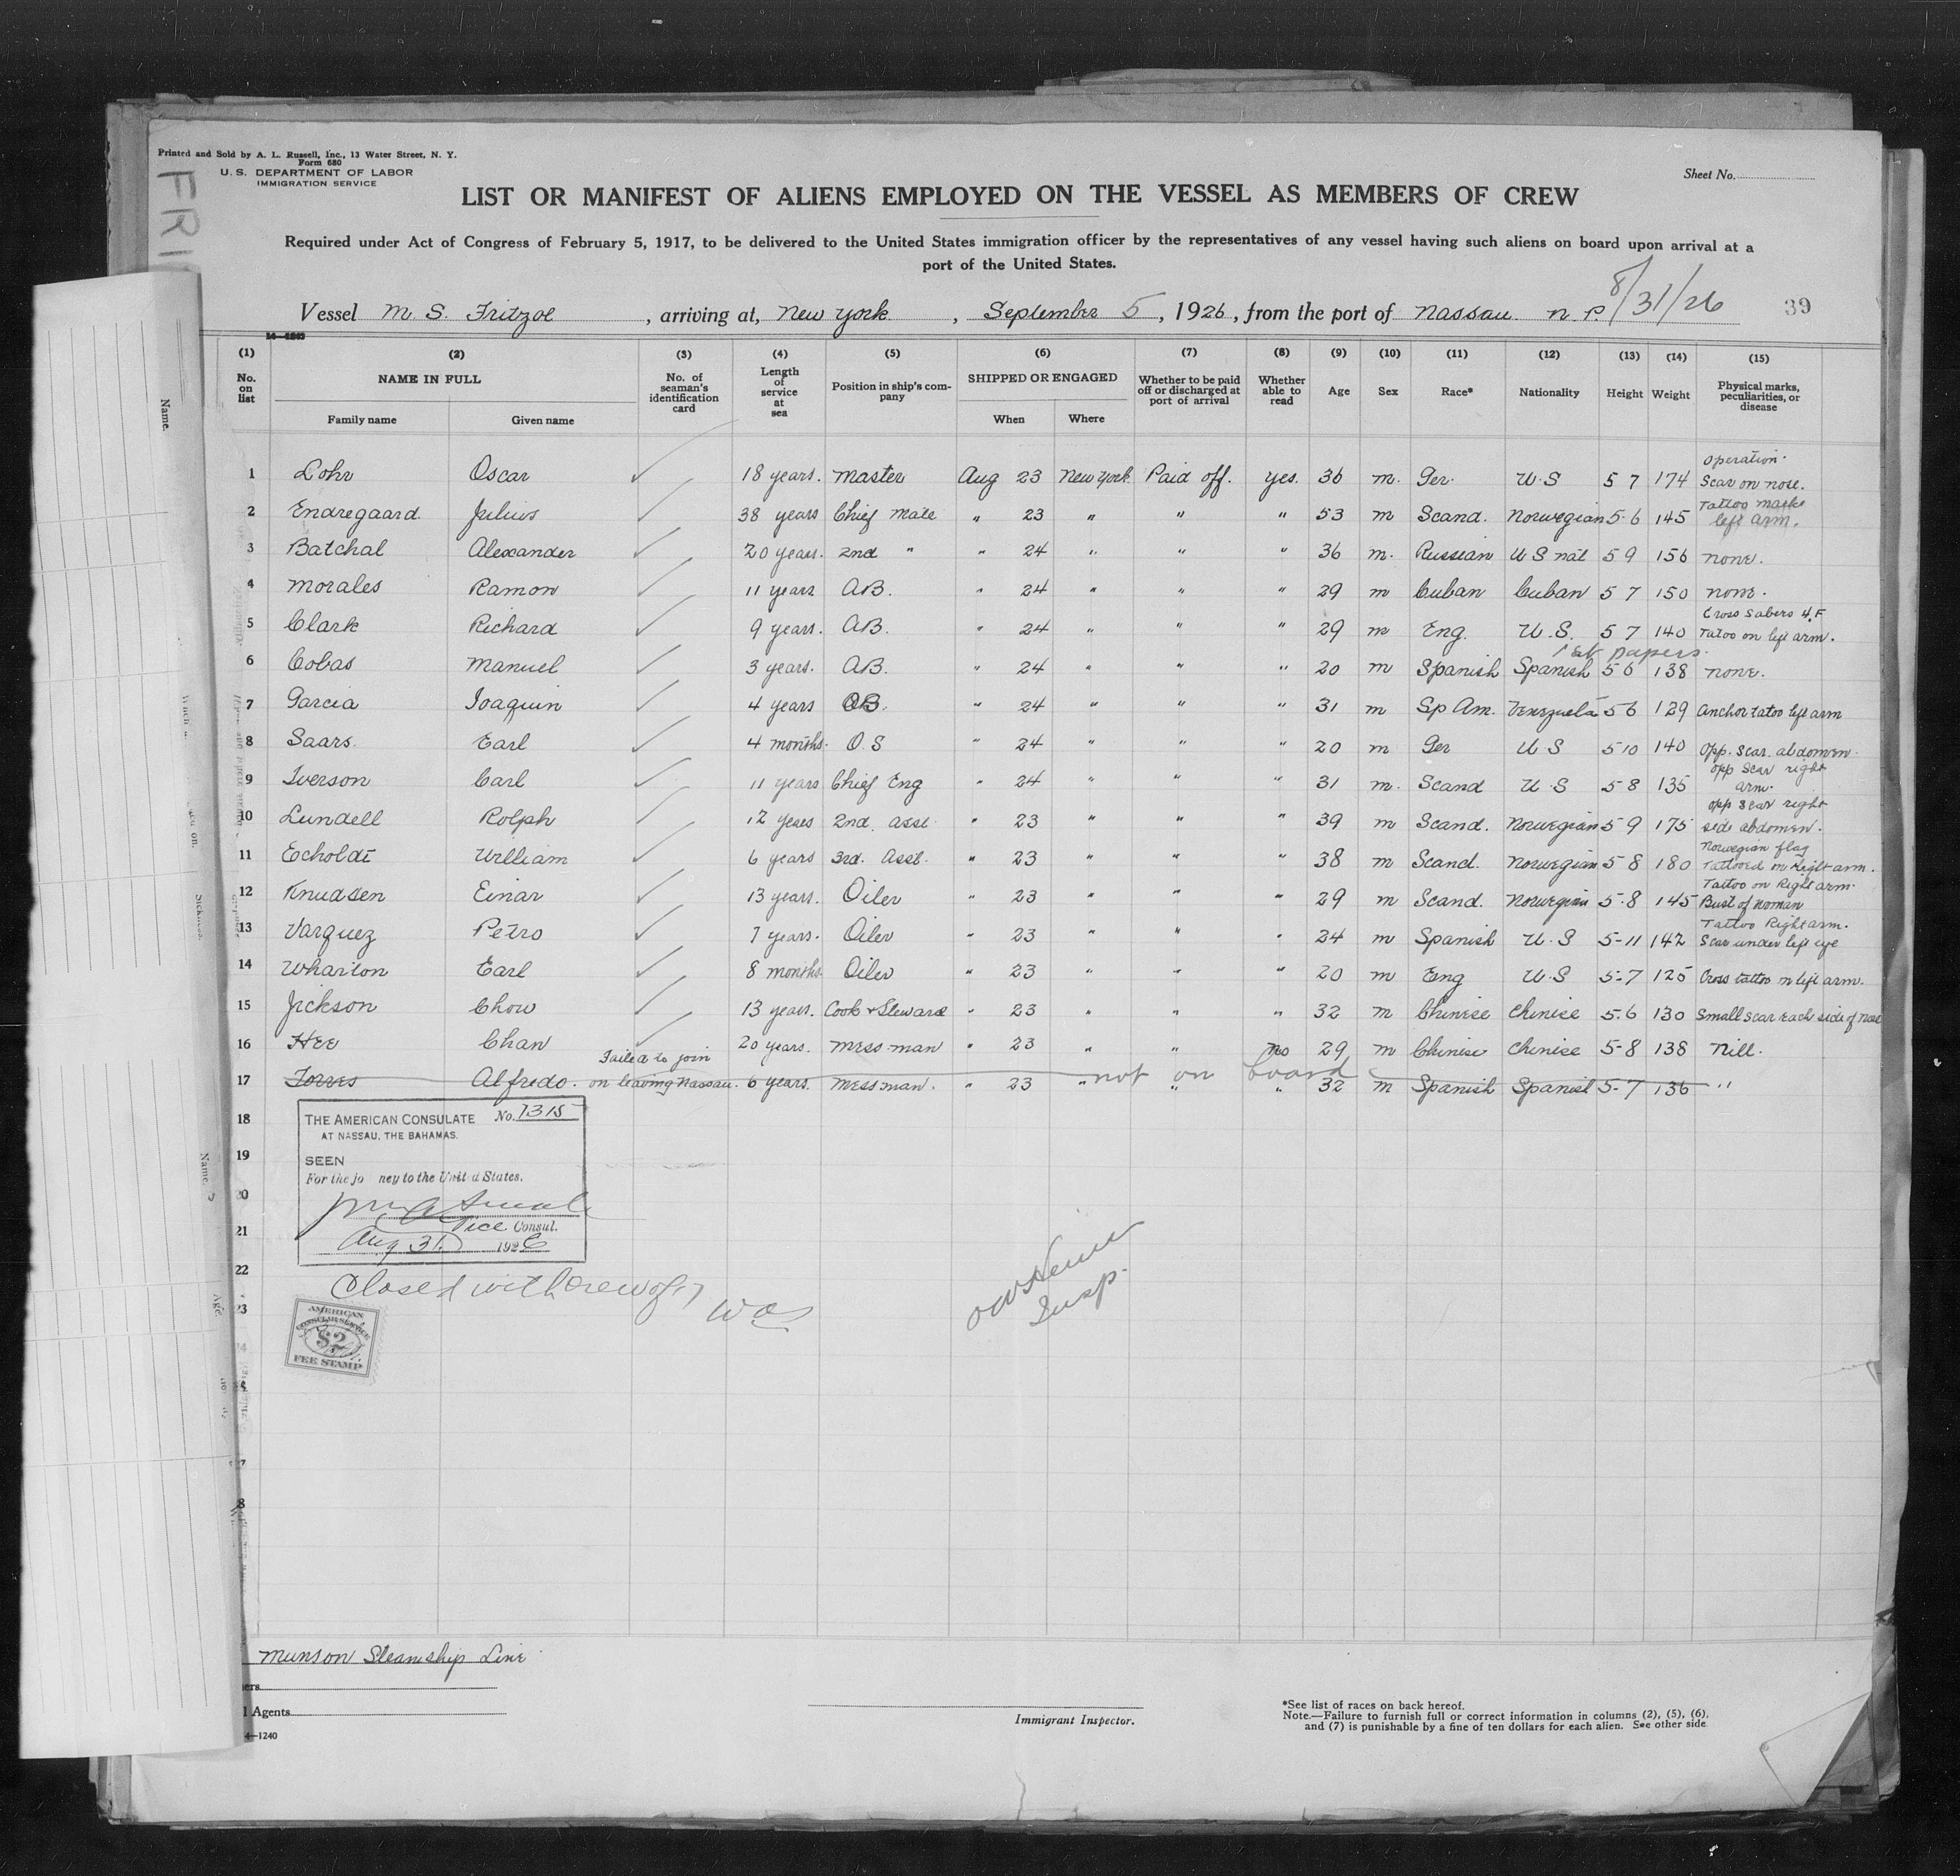 Printed and Sold by A. L. Russell, Inc., 13 Water Street, N. Y.
Form 680
U. S. DEPARTMENT OF LABOR
IMMIGRATION SERVICE
Sheet No.
LIST OR MANIFEST OF ALIENS EMPLOYED ON THE VESSEL AS MEMBERS OF CREW
Required under Act of Congress of February 5, 1917, to be delivered to the United States immigration officer by the representatives of any vessel having such aliens on board upon arrival at a
port of the United States.
Vessel M. S. Fritzoe, arriving at, New York, September 5, 1926, from the port of Nassau n.P. 8/31/26
39
(1) (2) (3) (4) (5) (6) (7) (8) (9) (10) (11) (12) (13) (14) (15)
No. on list NAME IN FULL Family name Given name No. of seaman's identification card Length of service at sea Position in ship's company SHIPPED OR ENGAGED When Where Whether to be paid off or discharged at port of arrival Whether able to read Age Sex Race* Nationality Height Weight Physical marks, peculiarities, or disease
1 Lohr Oscar 18 years. Master Aug 23 New York Paid off. yes. 36 m. Ger. U.S 5 7 174 Operation. Scar on nose.
2 Endregaard Julius 38 years Chief Mate " 23 " " " 53 m Scand. Norwegian 5-6 145 Tattoo marks left arm.
3 Batchal Alexander 20 years. 2nd " " 24 " " " 36 m. Russian U S nat 5 9 156 none.
4 Morales Ramon 11 years A.B. " 24 " " " 29 m Cuban Cuban 5 7 150 none.
5 Clark Richard 9 years. A.B. " 24 " " " 29 m Eng. U.S. 5 7 140 Cross Sabers 4.F Tatoo on left arm.
1st papers.
6 Cobas Manuel 3 years. A.B. " 24 " " " 20 m Spanish Spanish 5 6 138 none.
7 Garcia Joaquin 4 years O.B. " 24 " " " 31 m Sp Am. Venezuela 5 6 129 Anchor tatoo left arm
8 Saars. Earl 4 months. O.S " 24 " " " 20 m Ger U S 5 10 140 Opp. Scar. abdomen.
9 Iverson Carl 11 years Chief Eng " 24 " " " 31 m. Scand U.S 5-8 135 opp Scar right arm.
10 Lundell Rolph 12 years 2nd. Asst " 23 " " " 39 m Scand. Norwegian 5 9 175 opp scar right side abdomen.
11 Echoldt William 6 years 3rd. Asst. " 23 " " " 38 m Scand. Norwegian 5-8 180 Norwegian flag Tattooed on Right arm.
12 Knudsen Einar 13 years. Oiler " 23 " " " 29 m Scand. Norwegian 5-8 145 Tattoo on Right arm. Bust of Woman
13 Varquez Petro 7 years. Oiler " 23 " " " 24 m Spanish U.S 5-11 142 Tattoo Right arm. Scar under left eye
14 Wharton Earl 8 months. Oiler " 23 " " " 20 m Eng U.S 5-7 125 Cross tattoo on left arm.
15 Jickson Chow 13 years. Cook & Steward " 23 " " " 32 m Chinese Chinese 5.6 130 Small scar each side of nose
16 Hee Chan 20 years. Messman " 23 " " no 29 m Chinese Chinese 5-8 138 Nill.
17 Torres Alfredo. Failed to join on leaving Nassau. 6 years. Messman. " 23 " not on board " " 32 m Spanish Spanish 5-7 136 "
18
19
20
21
22
23
THE AMERICAN CONSULATE No. 1315
AT NASSAU, THE BAHAMAS.
SEEN
For the jo ney to the United States.
Vice Consul.
Aug 31. 1926
Closed with crew of 17
AMERICAN
CONSULAR SERVICE
$2
FEE STAMP
Insp.
Munson Steamship Line
ers
l Agents
4—1240
Immigrant Inspector.
*See list of races on back hereof.
Note.—Failure to furnish full or correct information in columns (2), (5), (6),
and (7) is punishable by a fine of ten dollars for each alien. See other side
Name.
Sickness.
Name.
Age.